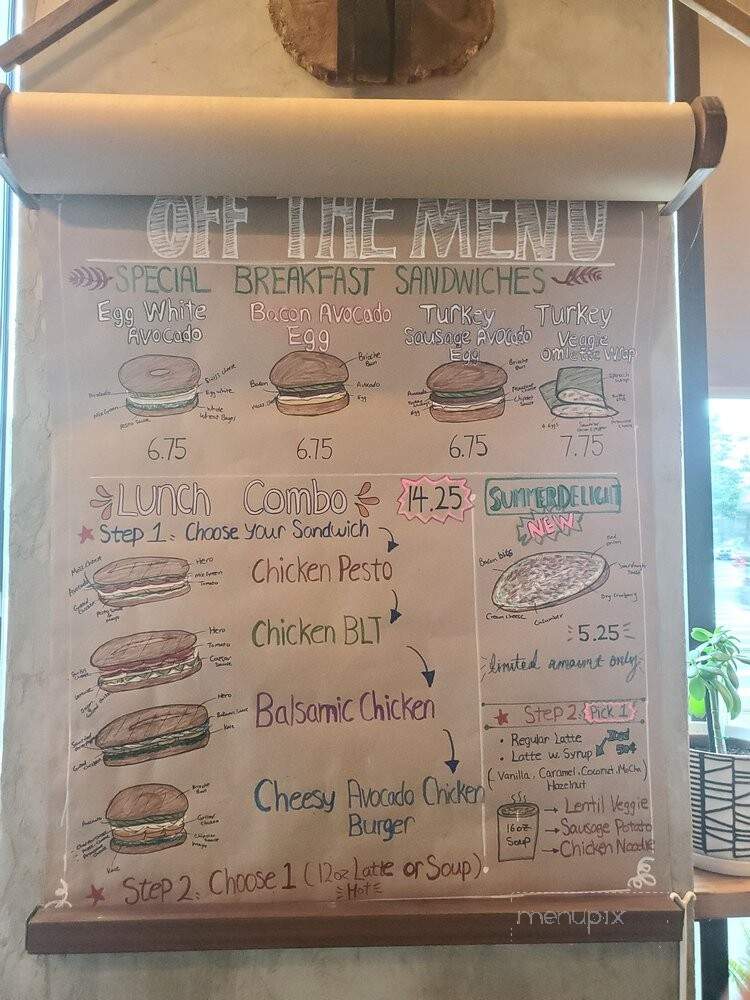 OFF THE MENU
SPECIAL BREAKFAST SANDWICHES
Egg White
Avocado
Swiss cheese
Avocado
Egg white
Mix Green
Whole
Wheat Bagel
Pesto Sauce
6.75
Bacon Avocado
Egg
Brioche
Bun
Bacon
Avocado
Egg
6.75
Turkey
Sausage Avocado
Egg
Brioche
Bun
Avocado
Chipotle
Sauce
Egg
6.75
Turkey
Veggie
Omlette Wrap
Spinach
Wrap
4 Eggs
7.75
LUNCH COMBO
14.25
Step 1: Choose Your Sandwich
Hero
Mix Green
Tomato
Avocado
Grilled
Chicken
Mayo
Chicken Pesto
Hero
Tomato
Caesar
Sauce
Chicken BLT
Hero
Balsamic Sauce
Kale
Grilled
Chicken
Balsamic Chicken
Brioche
Bun
Avocado
Grilled
Chicken
Chipotle
Mayo
Kale
Cheesy Avocado Chicken
Burger
Step 2: Choose 1 (12oz Latte or Soup).
Hot
SUMMER DELIGHT
NEW
Bacon bits
Red
onion
Sourdough
Toast
Dry Cranberry
Cream Cheese
Cucumber
5.25
limited amount only
Step 2: Pick 1
• Regular Latte
Iced
• Latte w. Syrup
50¢
(Vanilla, Caramel, Coconut, Mocha)
Hazelnut
16oz
Soup
Lentil Veggie
Sausage Potato
Chicken Noodle
menupix